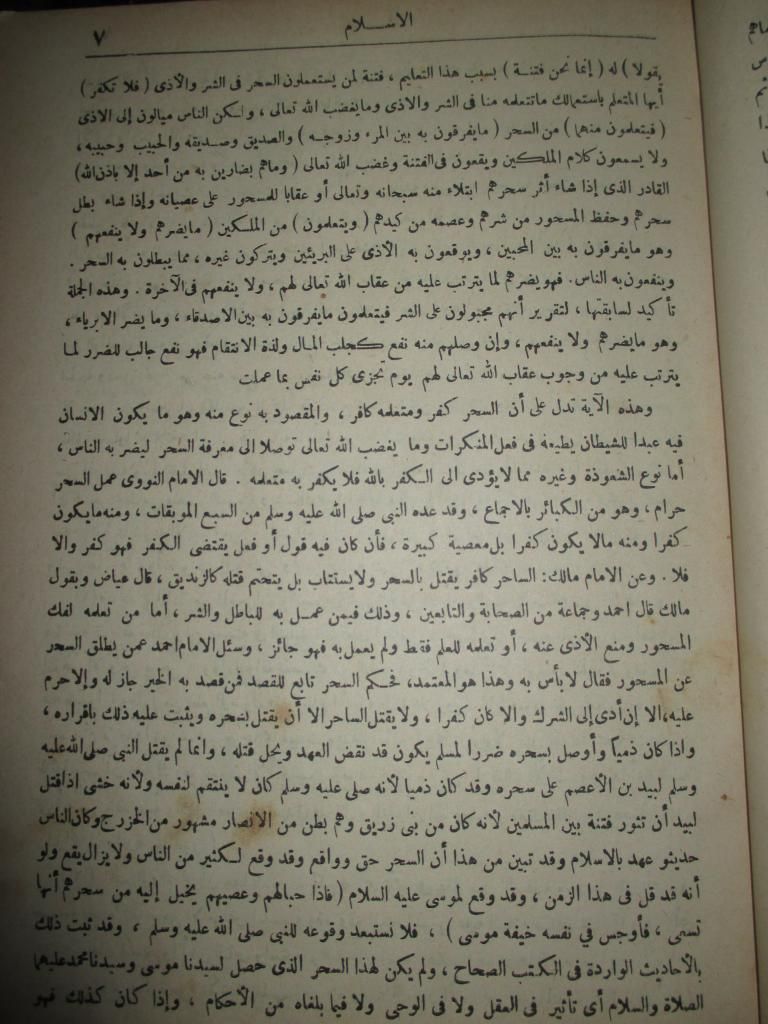 الاسلام
٧
يقولا ) له ( إنما نحن فتنة ) بسبب هذا التعليم ، فتنة لمن يستعملون السحر فى الشر والأذى ( فلا تكفر )
أيها المتعلم باستعمالك ماتتعلمه منا فى الشر والاذى ومايغضب الله تعالى ، ولكن الناس ميالون إلى الاذى
( فيتعلمون منهما ) من السحر ( مايفرقون به بين المرء وزوجه ) والصديق وصديقه والحبيب وحبيبه ،
ولا يسمعون كلام الملكين ويقعون فى الفتنة وغضب الله تعالى ( وماهم بضارين به من أحد إلا باذن الله )
القادر الذى إذا شاء أثر سحرهم ابتلاء منه سبحانه وتعالى أو عقابا للمسحور على عصيانه وإذا شاء بطل
سحرهم وحفظ المسحور من شرهم وعصمه من كيدهم ( ويتعلمون ) من الملكين ( مايضرهم ولا ينفعهم )
وهو مايفرقون به بين المحبين ، ويوقعون به الأذى على البريئين ويتركون غيره ، مما يبطلون به السحر .
وينفعون به الناس . فهو يضرهم لما يترتب عليه من عقاب الله تعالى لهم ، ولا ينفعهم فى الآخرة . وهذه الجملة
تأكيد لسابقتها ، لتقرير أنهم مجبولون على الشر فيتعلمون مايفرقون به بين الاصدقاء ، وما يضر الابرياء ،
وهو مايضرهم ولا ينفعهم ، وإن وصلهم منه نفع كجلب المال ولذة الانتقام فهو نفع جالب للضرر لما
يترتب عليه من وجوب عقاب الله تعالى لهم يوم تجزى كل نفس بما عملت
وهذه الآية تدل على أن السحر كفر ومتعلمه كافر ، والمقصود به نوع منه وهو ما يكون الانسان
فيه عبدا للشيطان يطيعه فى فعل المنكرات وما يغضب الله تعالى توصلا الى معرفة السحر ليضر به الناس ،
أما نوع الشعوذة وغيره مما لا يؤدى الى الكفر بالله فلا يكفر به متعلمه . قال الامام النووى عمل السحر
حرام ، وهو من الكبائر بالاجماع ، وقد عده النبى صلى الله عليه وسلم من السبع الموبقات ، ومنه مايكون
كفرا ومنه مالا يكون كفرا بل معصية كبيرة ، فأن كان فيه قول أو فعل يقتضى الكفر فهو كفر والا
فلا . وعن الامام مالك : الساحر كافر يقتل بالسحر ولايستتاب بل يتحتم قتله كالزنديق ، قال عياض وبقول
مالك قال احمد وجماعة من الصحابة والتابعين ، وذلك فيمن عمل به للباطل والشر ، أما من تعلمه لفك
المسحور ومنع الأذى عنه ، أو تعلمه للعلم فقط ولم يعمل به فهو جائز ، وسئل الامام احمد عمن يطلق السحر
عن المسحور فقال لا بأس به وهذا هو المعتمد ، فحكم السحر تابع للقصد فمن قصد به الخير جاز له وإلا حرم
عليه ، الا إن أدى إلى الشرك والا كان كفرا ، ولا يقتل الساحر الا أن يقتل بسحره ويثبت عليه ذلك باقراره ،
واذا كان ذمياً وأوصل بسحره ضررا لمسلم يكون قد نقض العهد ويحل قتله ، وانما لم يقتل النبى صلى الله عليه
وسلم لبيد بن الأعصم على سحره وقد كان ذميا لأنه صلى عليه وسلم كان لا ينتقم لنفسه ولأنه خشى اذا قتل
لبيد أن تثور فتنة بين المسلمين لأنه كان من بنى زريق وهم بطن من الانصار مشهور من الخزرج وكان الناس
حديثو عهد بالاسلام وقد تبين من هذا أن السحر حق وواقع وقد وقع لكثير من الناس ولا يزال يقع ولو
أنه قد قل فى هذا الزمن ، وقد وقع لموسى عليه السلام ( فاذا حبالهم وعصيهم يخيل إليه من سحرهم أنها
تسعى ، فأوجس في نفسه خيفة موسى ) ، فلا نستبعد وقوعه للنبى صلى الله عليه وسلم ، وقد ثبت ذلك
بالأحاديث الواردة فى الكتب الصحاح ، ولم يكن لهذا السحر الذى حصل لسيدنا موسى وسيدنا محمد عليهما
الصلاة والسلام أى تأثير فى العقل ولا فى الوحى ولا فيما بلغاه من الأحكام ، وإذا كان كذلك فهو